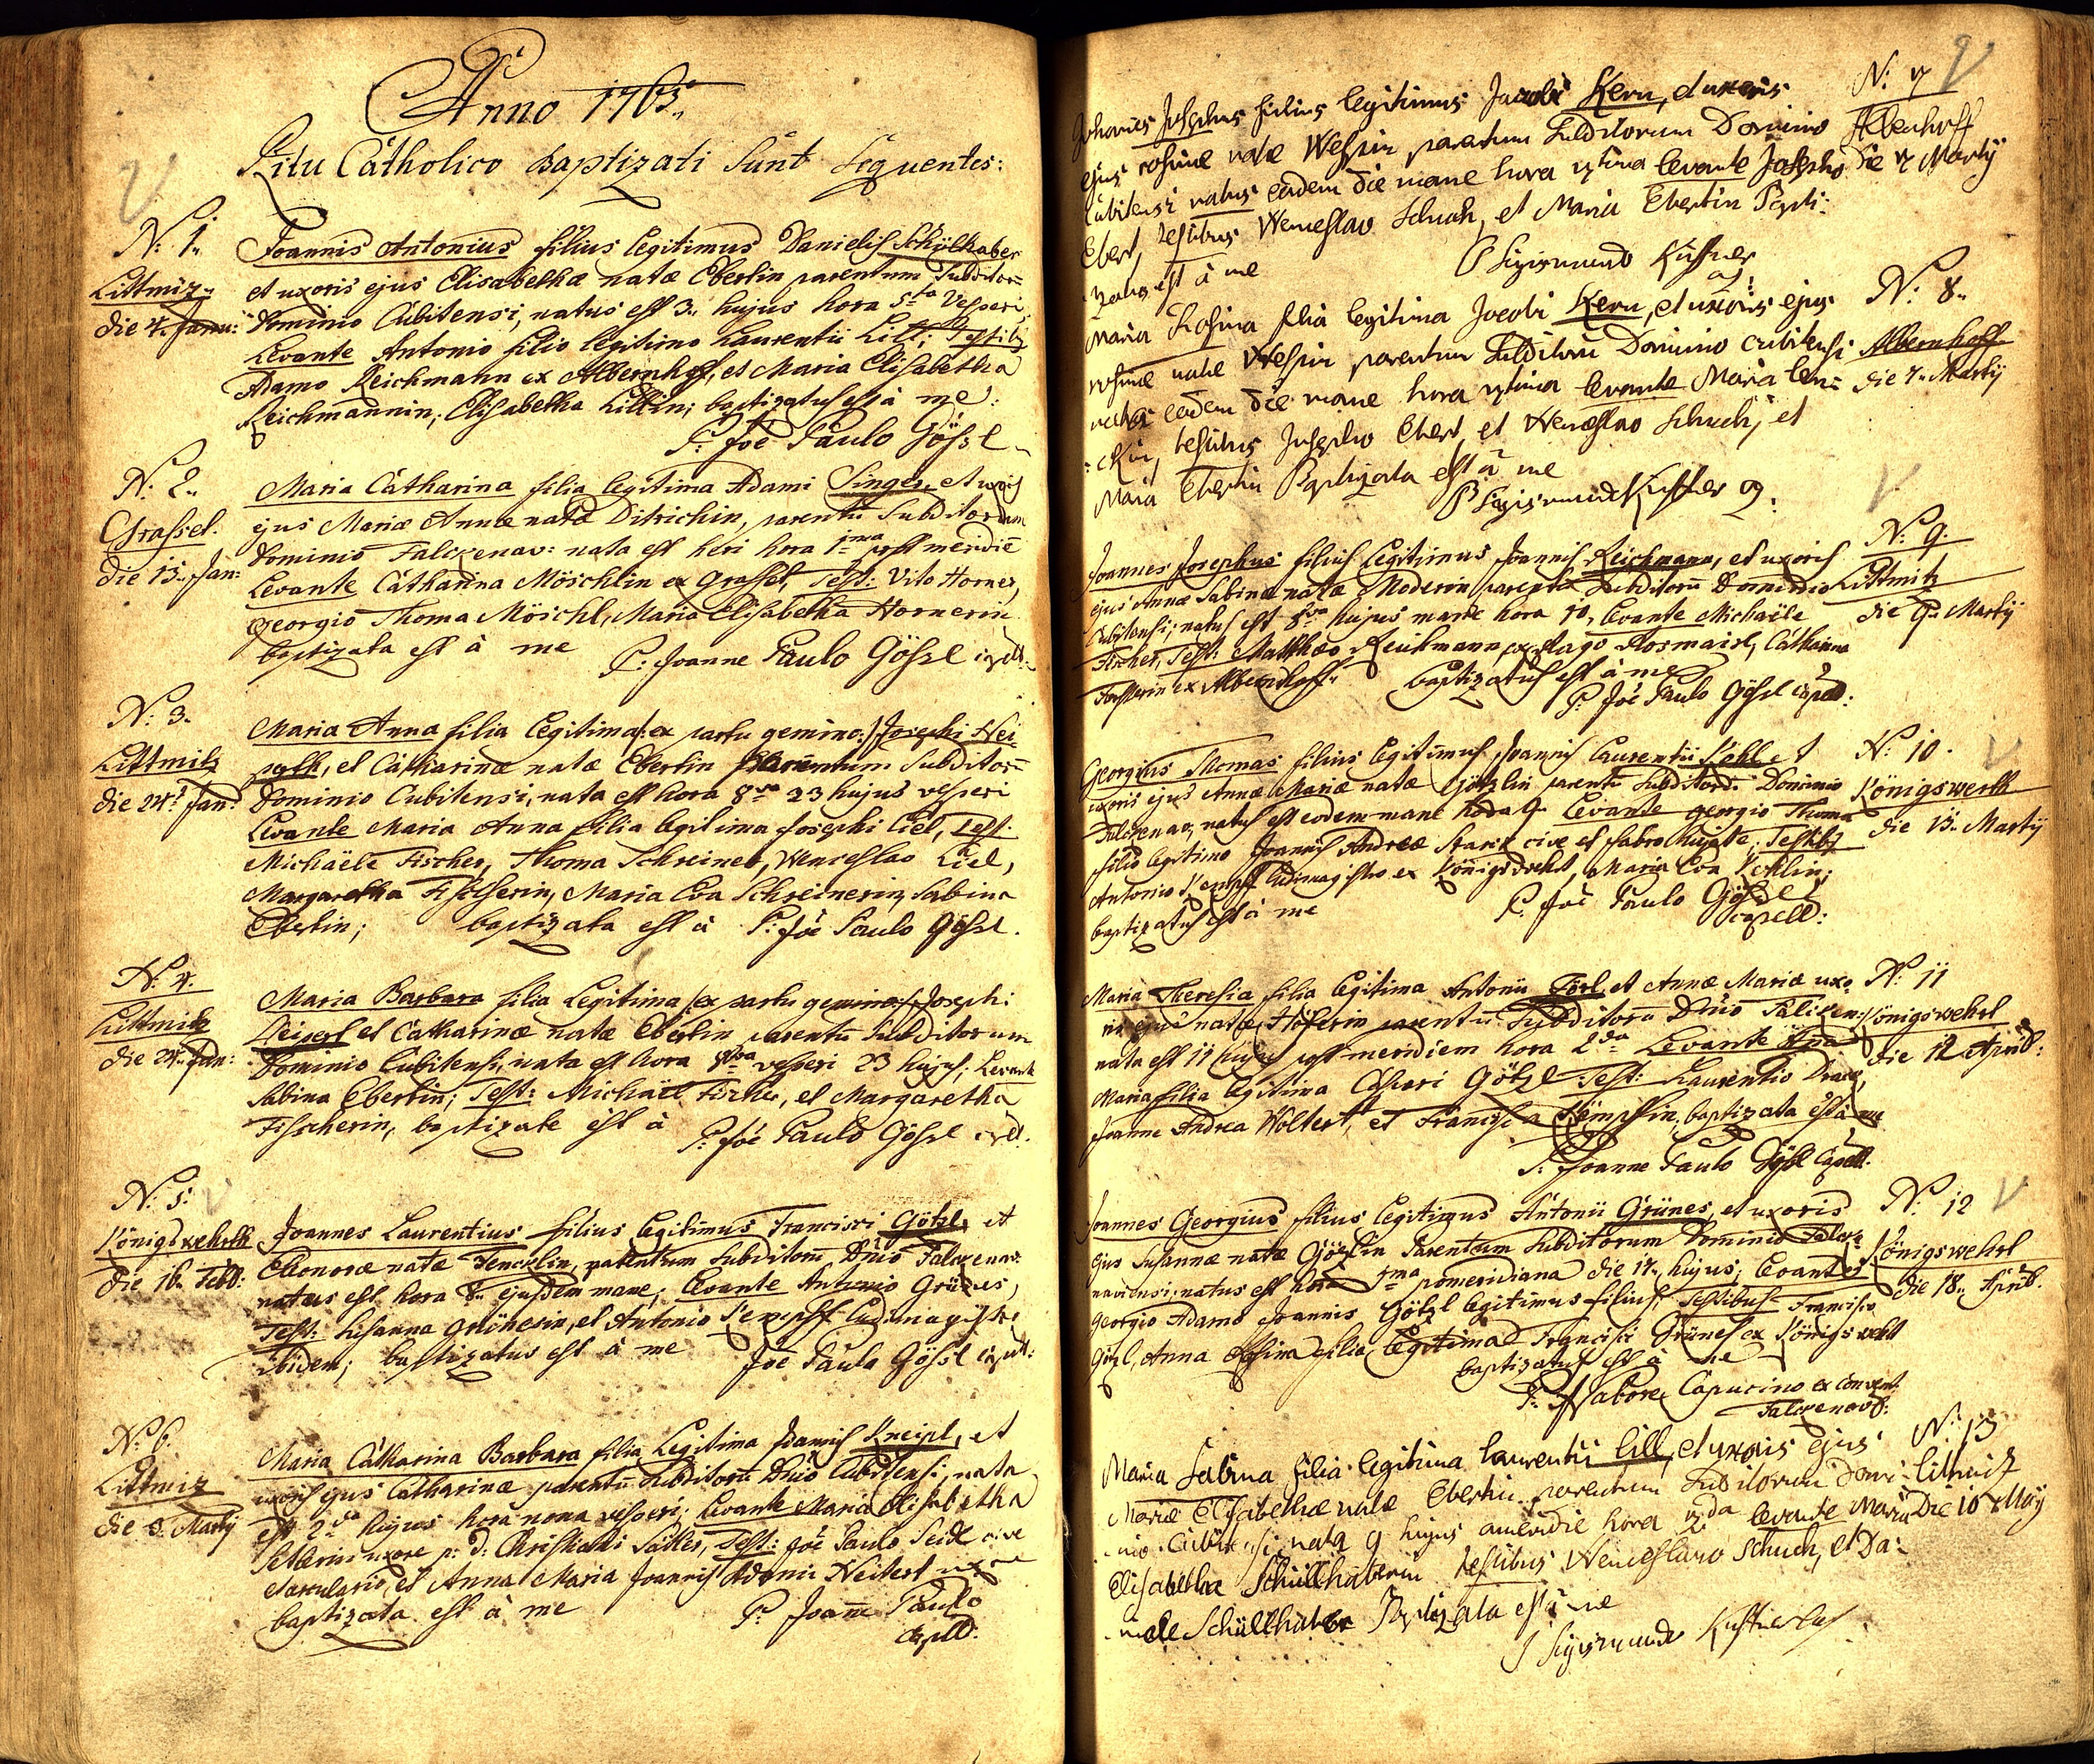 Anno 1763.
Ritu Catholico Baptizati Sunt Sequentes:
N: 1.
Littmiz
die 4. Janu:
Joannis Antonius filius legitimus Danielis Schülhaber
et uxoris ejus Elisabethæ natæ Eberlin parentum Subditorū
Dominio Cubitensi, natus est 3. hujus hora 5ta Vesperi,
Levante Antonio filio legitimo Laurentii Lill; Testib9
Adamo Reichmann ex Albernhoff, et Maria Elisabetha
Reichmannin; Elisabetha Lillin; baptizatus est à me:
P: Joē Paulo Gössl
N: 2.
Grassel.
die 13. Jan:
Maria Catharina filia legitima Adami Singer et uxoris
ejus Mariæ Annæ natæ Ditrichin, parentū Subditorum
Dominio Falckenav: nata est heri hora 1ma post meridiē
Levante Catharina Möschlin ex Grassel, Test: Vito Horner,
georgio Thoma Möschl, Maria Elisabetha Hornerin
baptizata est à me P: Joanne Paulo Gössl
N: 3.
Littmitz
die 24. Jan:
Maria Anna filia legitima /: ex partu gemino :/ Josephi Hei-
, et Catharinæ natæ Eberlin Parentum Subditorū
Dominio Cubitensi, nata est hora 8va 23 hujus vesperi
Levante Maria Anna filia legitima Josephi Liel, Test:
Michäele Fischer, Thoma Schreiner, Wenceslao Liel,
Margaretha Fischerin, Maria Eva Schreinerin, Sabina
Eberlin; baptizata est à P: Joē Paulo Gössl.
N: 4.
Littmitz
die 24. Jan:
Maria Barbara filia Legitima /: ex partu gemino :/ Josephi
et Catharinæ natæ Eberlin parentū Subditorum
Dominio Cubitensi, nata est hora 8va vesperi 23 hujus; Levante
Sabina Eberlin; Test: Michäel Fischer, et Margaretha
Fischerin, baptizate est à P: Joē Paulo Gössl
N: 5.
Königswehrth
die 16. Febr:
Joannes Laurentius filius legitimus Francisci Götzl, et
Elionoræ natæ parentum Subditorū Dnio Falckenav:
natus est hora 8. ejusdem mane; Levante Antonio Grünes,
Test: Susanna Grünerin, et Antonio Kempff Ludimagistro
ibidem; baptizatus est à me Joē Paulo Gössl
N: 6.
Littmiz
die 3. Martÿ
Maria Catharina Barbara filia Legitima Joannis Kneipl, et
uxoris ejus Catharinæ parentū Subditorū Dnio Cubitensi, nata
est 2da hujus hora nona vesperi; Levante Maria Elisabetha
uxore p: d: Christiani Test: Joē Paulo Seidl cive
et Anna Maria Joannis Adami uxore
baptizata est à me P: Joanne Paulo
Capell:
N: 7
Albenhoff
die 7 Martÿ
Johannes Josephus filius legitimus Jacobi Kern, et uxoris
ejus rosinæ natæ Wessin parentum Subditorum Dominio
Cubitensi natus eadem die mane hora 7tima levante Josepho
Ebert, testibus Wenceslao Schuch, et Maria Ebertin Bapti-
zatus est à me P Sigismund Küffner
N: 8.
Albernhoff
die 7. Martÿ
Maria Rosina filia legitima Jacobi Kern, et uxoris ejus
rosinæ natæ Wessin parentum Subditorū Dominio cubitensi
natus eadem die mane hora 7tima levante Maria
testibus Josepho Ebert, et Wenceslao Schuch, et
Maria Ebertin Baptizata est à me
P Sigismund Küffner
N: 9.
Littmitz
die 9. Martÿ
Joannes Josephus filius Legitimus Joannis Reichmann, et uxoris
ejus Annæ Sabinæ natæ Moderin parentū Subditorū Dominio
Cubitensi; natus est 8va hujus mane hora 10, Levante Michäele
Fischer, Test: Matthæo Reichmann, Catharina
ex Albernhoff. baptizatus est à me
P: Joē Paulo Gössl Capell:
N: 10.
Königswerth
die 13. Martÿ
Georgius Thomas filius legitimus Joannis Laurentii et
uxoris ejus Annæ Mariæ natæ Götzlin parentū Subditord: Dominio
Falckenav, natus est eodem mane hora 9. Levante georgio Thoma
filio legitimo Joannis Andreæ Starck cive et fabro hujate; Testib9
Antonio Kempff Ludimagistro ex Königswehrt, Maria Eva
baptizatus est à me P: Joē Paulo Gössl
capell:
N: 11
Königswehrt
die 12 April:
Maria Theresia filia legitima Antonii et Annæ Mariæ uxo-
ris ejus natæ Höferin parentū Subditorū Dnio Falcken:
nata est 11 hujus post meridiem hora 2da Levante Aña
Maria filia legitima Caspari Götzl Test: Laurentio
Joanne Andrea Woltert, et Francisca Kämpffin, baptizata est à me
P: Joanne Paulo Gössl Capell:
N: 12
Königswehrt
die 18. April.
Joannes Georgius filius legitimus Antonii Grünes, et uxoris
ejus Susannæ natæ Götzlin Parentum Subditorum Dominio Falcke-
naviensi; natus est hora 1ma pomeridiana die 17. hujus, Levante
georgio Adamo Joannis Götzl legitimus filius, Testibus Francisco
Götzl, Anna Rosina filia legitima Francisci Grünes ex Königswehrt
baptizatus est à me
P: Capucino ex Convent:
Falckenov:
N: 13
Littmitz
Die 10 Maÿ
Maria Sabina filia legitima laurentii Lill, et uxoris ejus
Mariæ Elisabethæ natæ Ebertin parentum Subditorum Domi-
nio Cubitensi nata 9 hujus hora levante Maria
Elisabetha Schüllhaberin testibus Wenceslavo Schuch, et Da-
niele Schüllhaber Baptizata est à me
P Sigismund Küffner